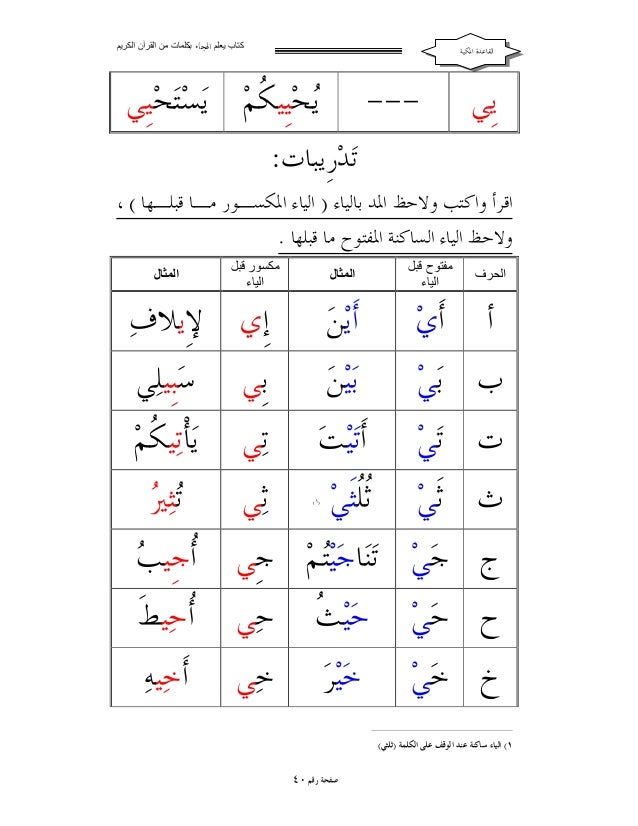 القاعدة المكية
كتاب يعلم الهجاء، بكلمات من القرآن الكريم
يِي --- يُحْيِيكُمْ يَسْتَحْيِي
تَدْرِيبات:
اقرأ واكتب ولاحظ المد بالياء ( الياء المكســور مــا قبلــها ) ،
ولاحظ الياء الساكنة المفتوح ما قبلها .
الحرف مفتوح قبل الياء المثال مكسور قبل الياء المثال
أ أَيْ أَيْنَ إِي لإِيلافِ
ب بَيْ بَيْنَ بِي سَبِيلِي
ت تَيْ أَتَيْتَ تِي يَأْتِيكُمْ
ث ثَيْ ثُلُثَيْ (١) ثِي تُثِيرُ
ج جَيْ تَنَاجَيْتُمْ جِي أُجِيبُ
ح حَيْ حَيْثُ حِي أُحِيطَ
خ خَيْ خَيْرَ خِي أَخِيهِ
١) الياء ساكنة عند الوقف على الكلمة (ثلثي)
صفحة رقم ٤٠